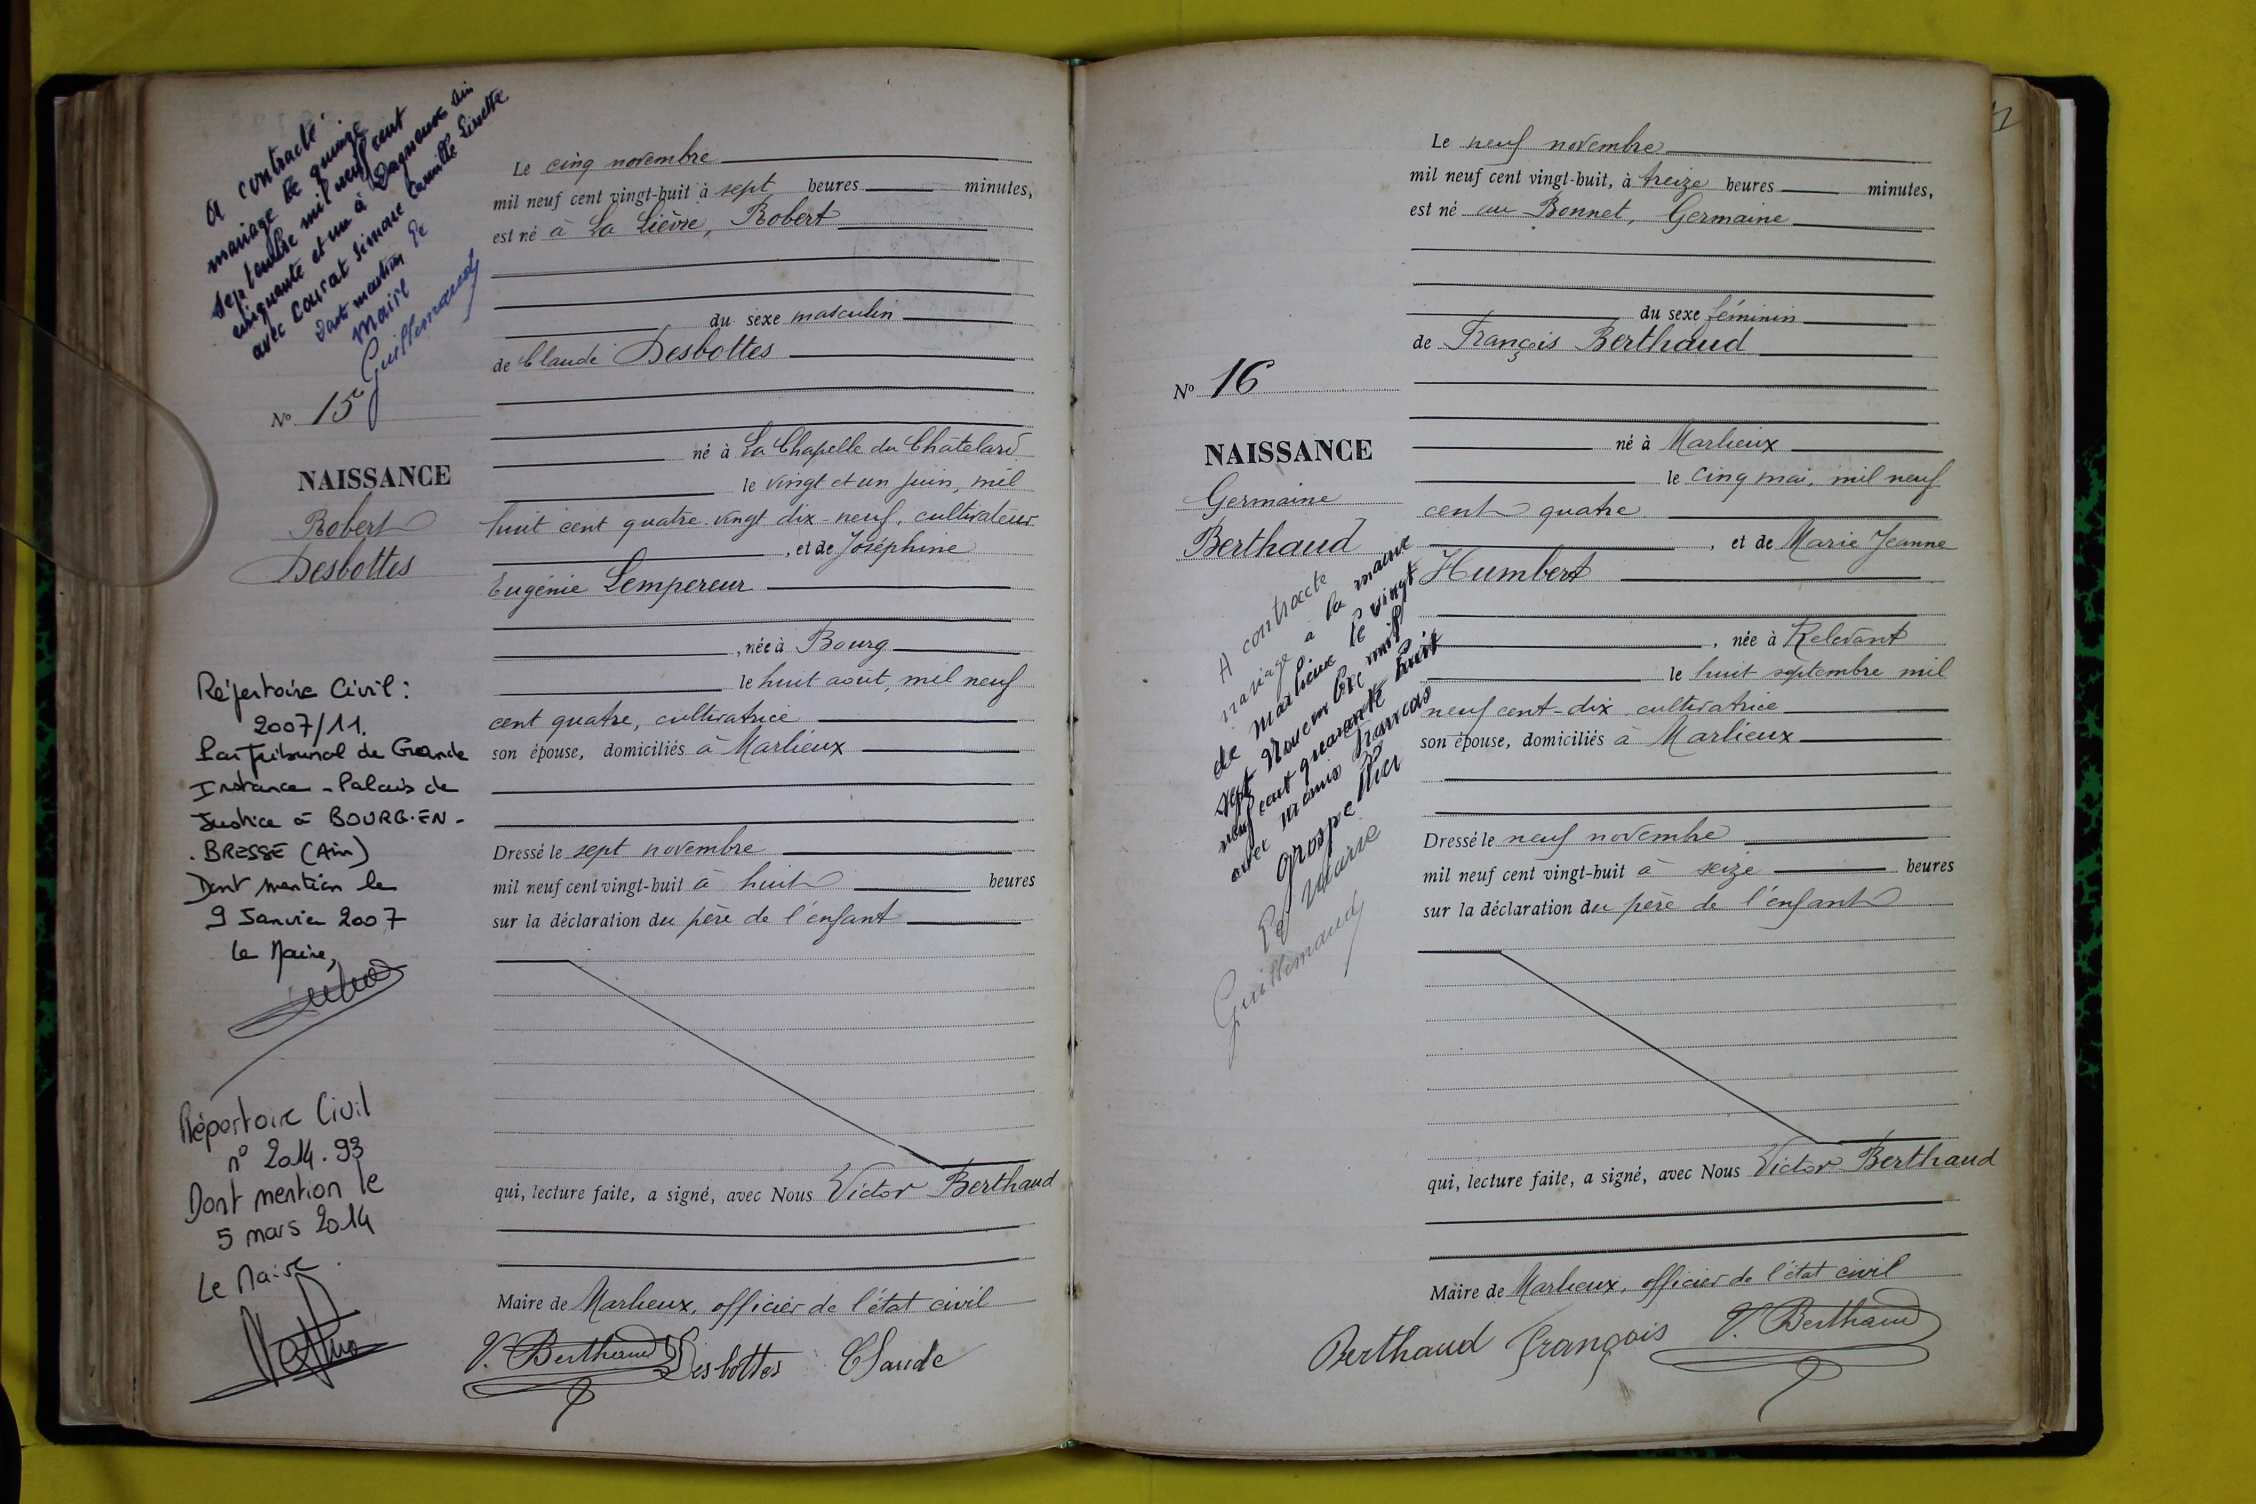 A contracté
mariage le quinze
septembre mil neuf cent
cinquante et un à Dagneux Ain
avec Courat Simone Camille Ginette
Dont mention le
Maire
Guillemaud
No 15
NAISSANCE
Robert
Desbottes
Répertoire Civil :
2007/11.
Par Tribunal de Grande
Instance - Palais de
Justice à BOURG-EN-
BRESSE (Ain)
Dont mention le
9 Janvier 2007
Le Maire,
Répertoire Civil
n° 2014.93
Dont mention le
5 mars 2014
Le Maire
Le cinq novembre
mil neuf cent vingt-huit à sept heures minutes,
est né à La Lièvre, Robert
du sexe masculin
de Claude Desbottes
né à La Chapelle du Châtelard
le vingt et un juin, mil
huit cent quatre-vingt dix-neuf, cultivateur
, et de Joséphine
Eugénie Lempereur
, née à Bourg
le huit août, mil neuf
cent quatre, cultivatrice
son épouse, domiciliés à Marlieux
Dressé le sept novembre
mil neuf cent vingt-huit à huit heures
sur la déclaration du père de l'enfant
qui, lecture faite, a signé, avec Nous Victor Berthaud
Maire de Marlieux, officier de l'état civil
V. Berthaud Desbottes Claude
No 16
NAISSANCE
Germaine
Berthaud
A contracté
mariage à la mairie
de Marlieux le vingt
sept Novembre mil
neuf cent quarante huit
avec Francois
Grospellier
Le Maire
Guillemaud
Le neuf novembre
mil neuf cent vingt-huit, à treize heures minutes,
est né au Bonnet, Germaine
du sexe féminin
de François Berthaud
né à Marlieux
le cinq mai, mil neuf
cent quatre
, et de Marie Jeanne
Humbert
, née à Relevant
le huit septembre mil
neuf cent-dix cultivatrice
son épouse, domiciliés à Marlieux
Dressé le neuf novembre
mil neuf cent vingt-huit à seize heures
sur la déclaration du père de l'enfant
qui, lecture faite, a signé, avec Nous Victor Berthaud
Maire de Marlieux, officier de l'état civil
Berthaud François V. Berthaud